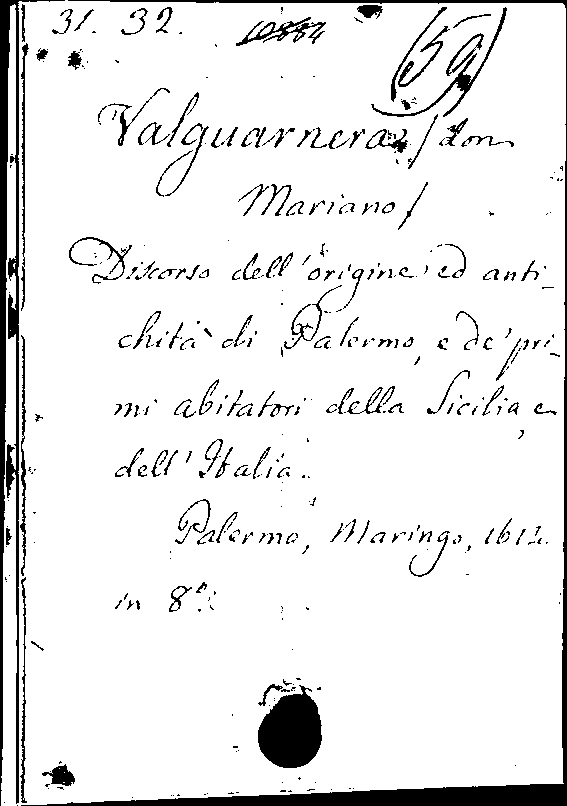 31. 32. 10884 (59)
Valguarnera / don
Mariano /
Discorso dell' origine ed anti-
chità di Palermo, e de' pri-
mi abitatori della Sicilia, e
dell' Italia.
Palermo, Maringo, 1614.
in 8º.